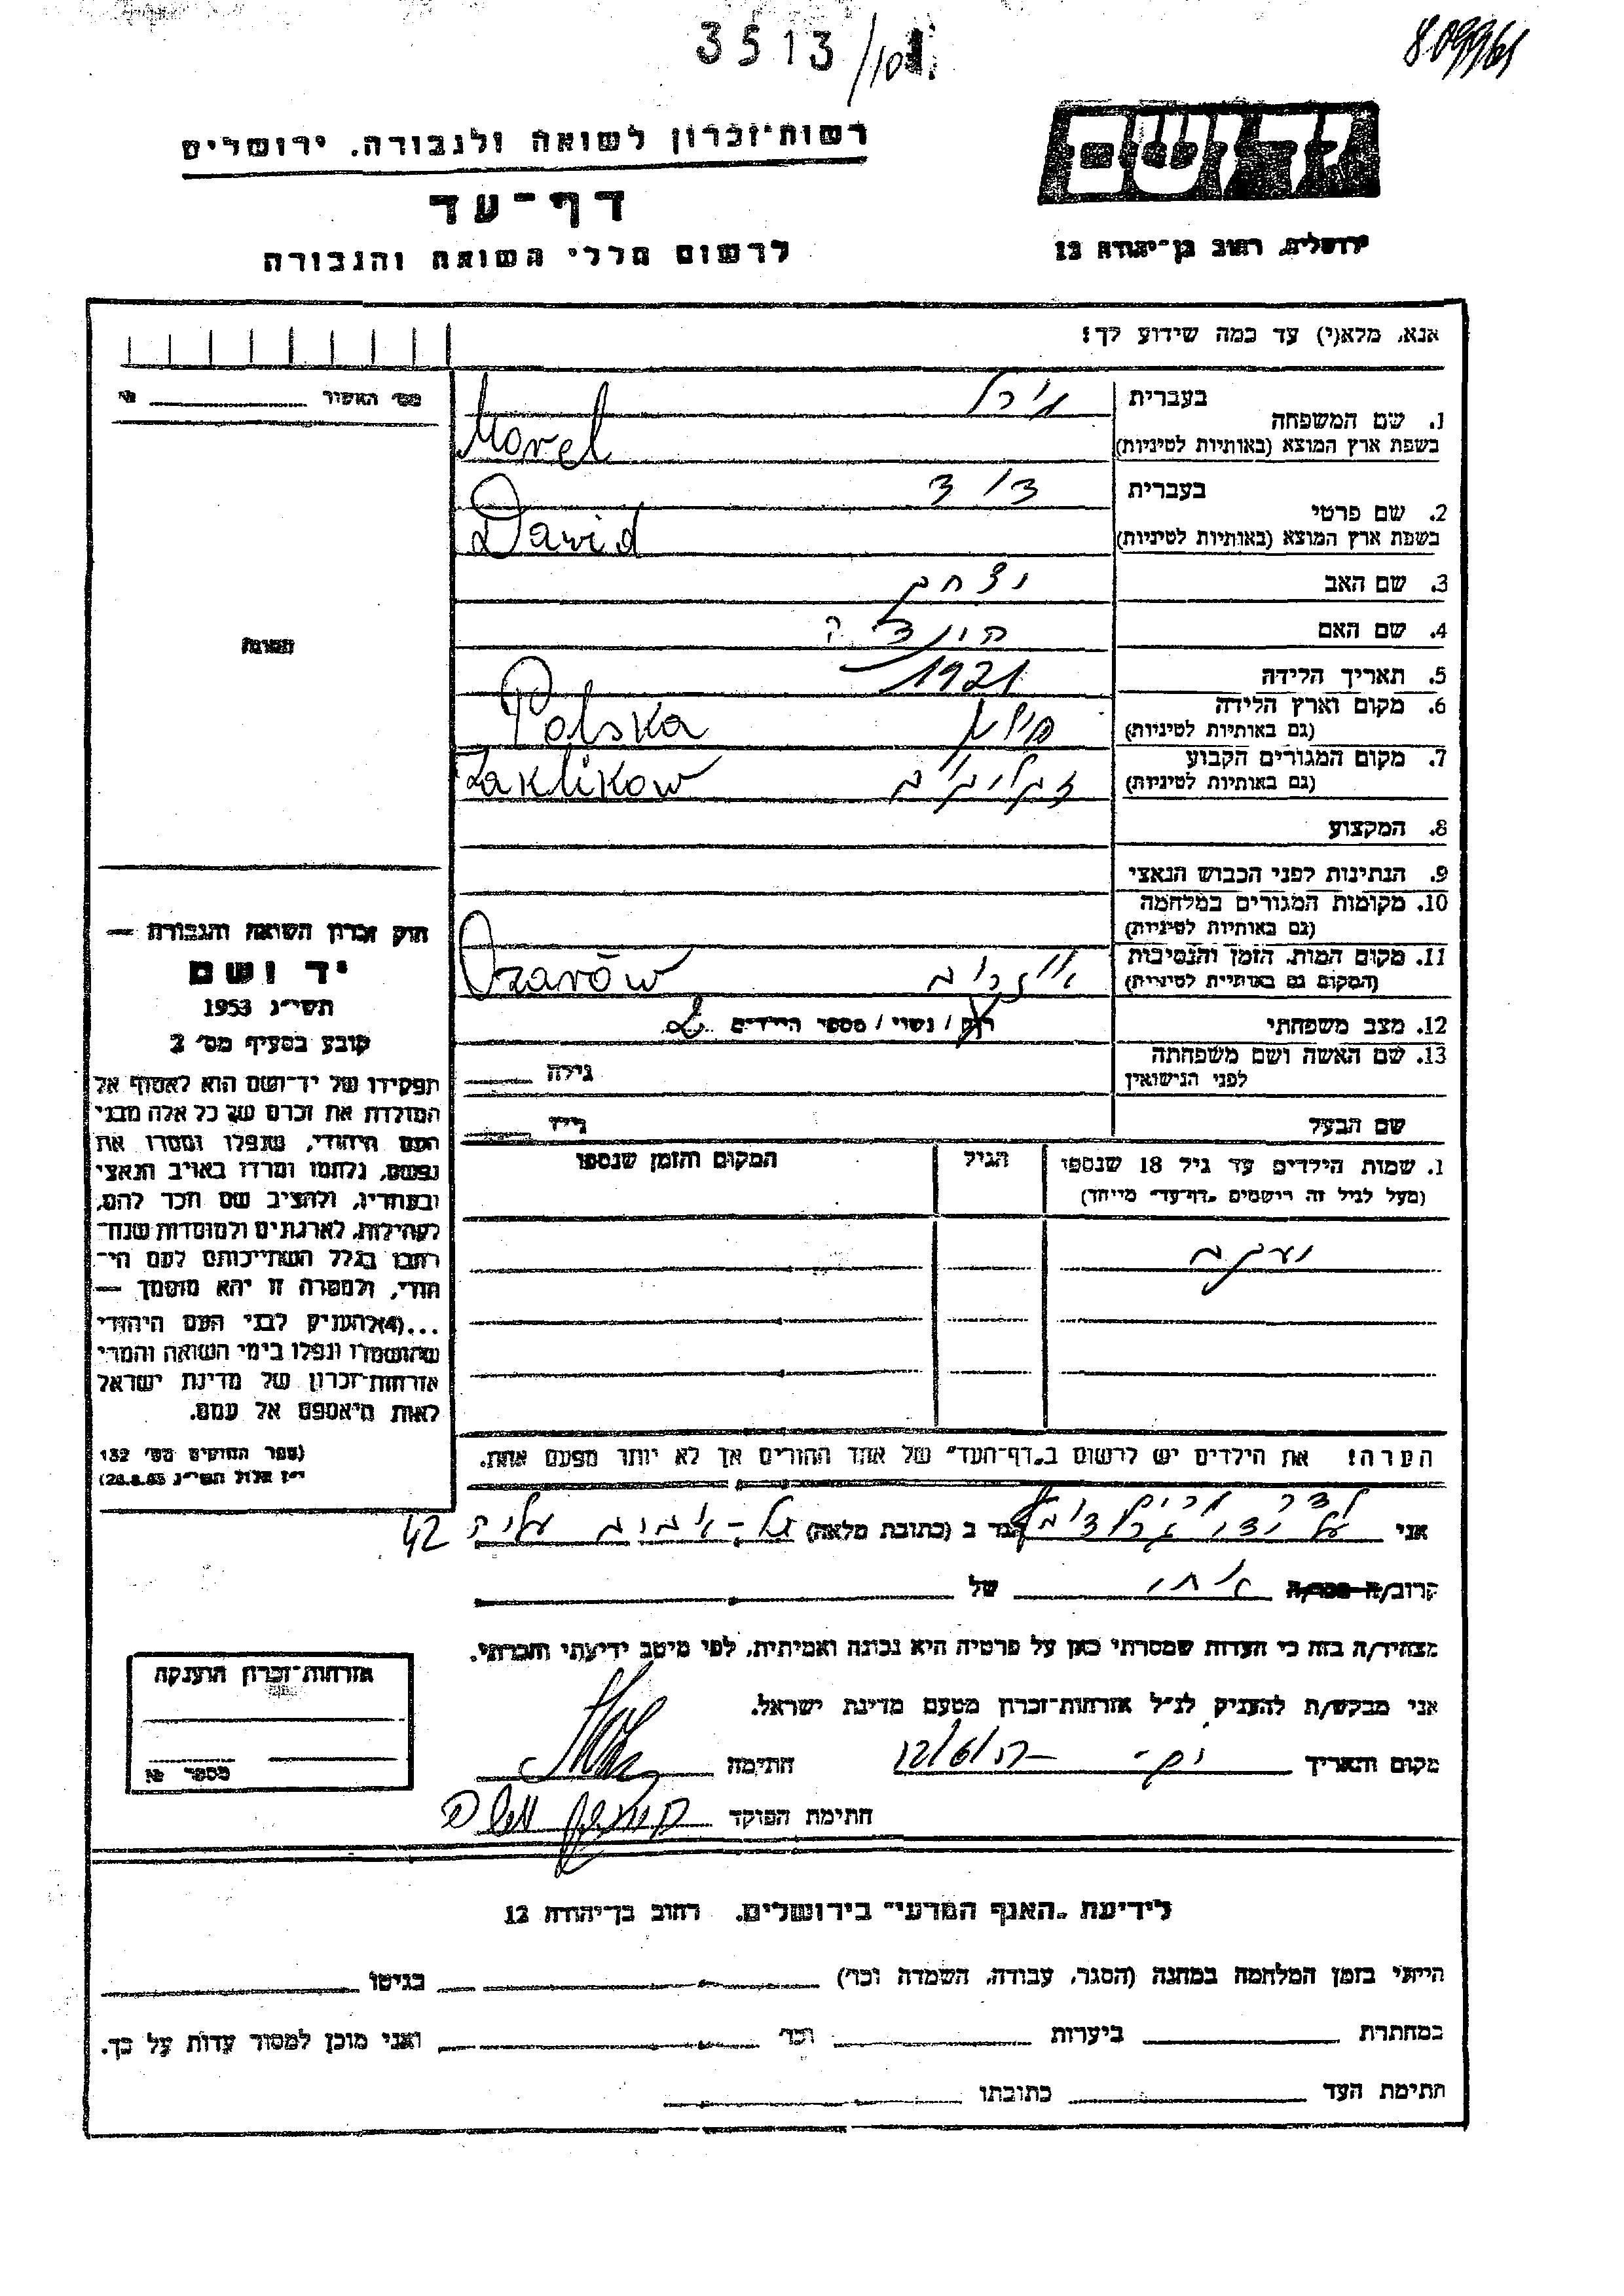 3513/10
809965
יד ושם
רשות־זכרון לשואה ולגבורה. ירושלים
דף־עד
לרשום חללי השואה והגבורה
ירושלים, רחוב בן־יהודה 12
אנא, מלא(י) עד כמה שידוע לך!
מס' האשור № 
1. שם המשפחה
בעברית
בשפת ארץ המוצא (באותיות לטיניות) Morel
2. שם פרטי
בעברית דוד
בשפת ארץ המוצא (באותיות לטיניות) Dawid
3. שם האב יצחק
4. שם האם
5. תאריך הלידה 1921
6. מקום וארץ הלידה
(גם באותיות לטיניות) פולין Polska
7. מקום המגורים הקבוע
(גם באותיות לטיניות) Zaklikow
8. המקצוע
9. הנתינות לפני הכבוש הנאצי
10. מקומות המגורים במלחמה
(גם באותיות לטיניות)
11. מקום המות, הזמן והנסיבות
(המקום גם באותיות לטיניות) Ozarów
12. מצב משפחתי רוק / נשוי / מספר הילדים 2
13. שם האשה ושם משפחתה
לפני הנישואין
גילה
שם הבעל גילו
1. שמות הילדים עד גיל 18 שנספו הגיל המקום והזמן שנספו
(מעל לגיל זה רישמים „דף־עד" מייחד)
יעקב
הערה! את הילדים יש לרשום ב„דף־העד" של אחד ההורים אך לא יותר מפעם אחת.
תמונה
חוק זכרון השואה והגבורה —
יד ושם
תשי"ג 1953
קובע בסעיף מס' 2
תפקידו של יד־ושם הוא לאסוף אל
המולדת את זכרם של כל אלה מבני
העם היהודי, שנפלו ומסרו את
נפשם, נלחמו ומרדו באויב הנאצי
ובעוזריו, ולהציב שם וזכר להם,
לקהילות, לארגונים ולמוסדות שנח־
רבו בגלל השתייכותם לעם הי־
הודי, ולמטרה זו יהא מוסמך —
...(4)להעניק לבני העם היהודי
שהושמדו ונפלו בימי השואה והמרי
אזרחות־זכרון של מדינת ישראל
לאות היאספם אל עמם.
(ספר החוקים מס' 132
י"ז אלול תשי"ג 28.8.53)
אני הגר ב (כתובת מלאה) תל-אביב עליה 42
קרוב/ה מכר/ה אחי של
מצהיר/ה בזה כי העדות שמסרתי כאן על פרטיה היא נכונה ואמיתית, לפי מיטב ידיעתי והכרתי.
אני מבקש/ת להעניק לנ"ל אזרחות־זכרון מטעם מדינת ישראל.
מקום ותאריך חתימה
חתימת הפוקד
אזרחות־זכרון הוענקה
מספר №
לידיעת „האגף המדעי" בירושלים. רחוב בן־יהודה 12
הייתי בזמן המלחמה במחנה (הסגר, עבודה, השמדה וכו') בגיטו
במחתרת ביערות וכו' ואני מוכן למסור עדות על כך.
חתימת העד כתובתו